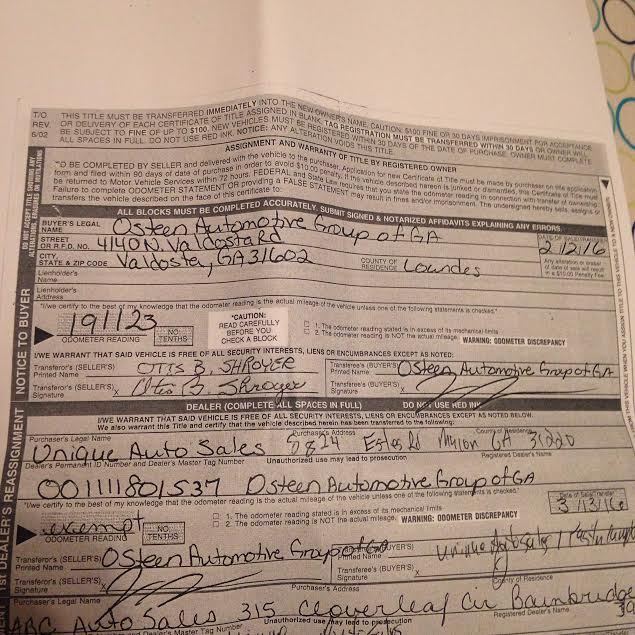 T/O THIS TITLE MUST BE TRANSFERRED IMMEDIATELY INTO THE NEW OWNER'S NAME. CAUTION: $100 FINE OR 30 DAYS IMPRISONMENT FOR ACCEPTANCE
REV. OR DELIVERY OF EACH CERTIFICATE OF TITLE ASSIGNED IN BLANK. TAG REGISTRATION MUST BE TRANSFERRED WITHIN 30 DAYS OR OWNER WILL
6/02 BE SUBJECT TO FINE OF UP TO $100. NEW VEHICLES MUST BE REGISTERED WITHIN 30 DAYS OF THE DATE OF PURCHASE. OWNER MUST COMPLETE
ALL SPACES IN FULL. DO NOT USE RED INK. NOTICE: ANY ALTERATION VOIDS THIS TITLE
ASSIGNMENT AND WARRANTY OF TITLE BY REGISTERED OWNER
"TO BE COMPLETED BY SELLER and delivered with the vehicle to the purchaser. Application for new Certificate of Title must be made by purchaser on title application
form and filed within 90 days of date of purchase in order to avoid $10.00 penalty. If the vehicle described herein is junked or dismantled, this Certificate of Title must
be returned to Motor Vehicle Services within 72 hours. FEDERAL and State Law requires that you state the odometer reading in connection with transfer of ownership.
Failure to complete ODOMETER STATEMENT or providing a FALSE STATEMENT may result in fines and/or imprisonment. The undersigned hereby sells, assigns or
transfers the vehicle described on the face of this certificate to:
ALL BLOCKS MUST BE COMPLETED ACCURATELY. SUBMIT SIGNED & NOTARIZED AFFIDAVITS EXPLAINING ANY ERRORS.
BUYER'S LEGAL NAME Osteen Automotive Group of GA
STREET OR R.F.D. NO. 4140 N. Valdosta Rd 2/12/16
CITY, STATE & ZIP CODE Valdosta, GA 31602 COUNTY OF RESIDENCE Lowndes Any alteration or eraser of date of sale will result in a $10.00 Penalty Fee
Lienholder's Name
Lienholder's Address
"I/we certify to the best of my knowledge that the odometer reading is the actual mileage of the vehicle unless one of the following statements is checked."
191123 NO TENTHS
ODOMETER READING
*CAUTION: READ CAREFULLY BEFORE YOU CHECK A BLOCK
1. The odometer reading stated is in excess of its mechanical limits
2. The odometer reading is NOT the actual mileage. WARNING: ODOMETER DISCREPANCY
I/WE WARRANT THAT SAID VEHICLE IS FREE OF ALL SECURITY INTERESTS, LIENS OR ENCUMBRANCES EXCEPT AS NOTED:
Transferor's (SELLER'S) Printed Name OTIS B. SHROYER Transferee's (BUYER'S) Printed Name Osteen Automotive Group of GA
Transferor's (SELLER'S) Signature X Otis B. Shroyer Transferee's (BUYER'S) Signature X
DEALER (COMPLETE ALL SPACES IN FULL) DO NOT USE RED INK
I/WE WARRANT THAT SAID VEHICLE IS FREE OF ALL SECURITY INTERESTS, LIENS OR ENCUMBRANCES EXCEPT AS NOTED BELOW.
We also warrant this Title and certify that the vehicle described herein has been transferred to the following:
Purchaser's Legal Name Purchaser's Address County of Residence
Unique Auto Sales 8824 Estes Rd Macon GA 31220
Dealer's Permanent ID Number and Dealer's Master Tag Number Unauthorized use may lead to prosecution Registered Dealer's Name
001111801537 Osteen Automotive Group of GA
"I/we certify to the best of my knowledge that the odometer reading is the actual mileage of the vehicle unless one of the following statements is checked." Date of Sale/Transfer
exempt NO TENTHS 3/13/16
ODOMETER READING
1. The odometer reading stated is in excess of its mechanical limits
2. The odometer reading is NOT the actual mileage. WARNING: ODOMETER DISCREPANCY
Transferor's (SELLER'S) Printed Name Osteen Automotive Group of GA (BUYER'S) Unique
Transferor's (SELLER'S) Signature X Transferee's (BUYER'S) Signature X
Purchaser's Legal Name Purchaser's Address County of Residence
ABC Auto Sales 315 Cloverleaf Cir Bainbridge
Dealer's Master Tag Number Unauthorized use may lead to prosecution Registered Dealer's Name
NOTICE TO BUYER
1st DEALER'S REASSIGNMENT